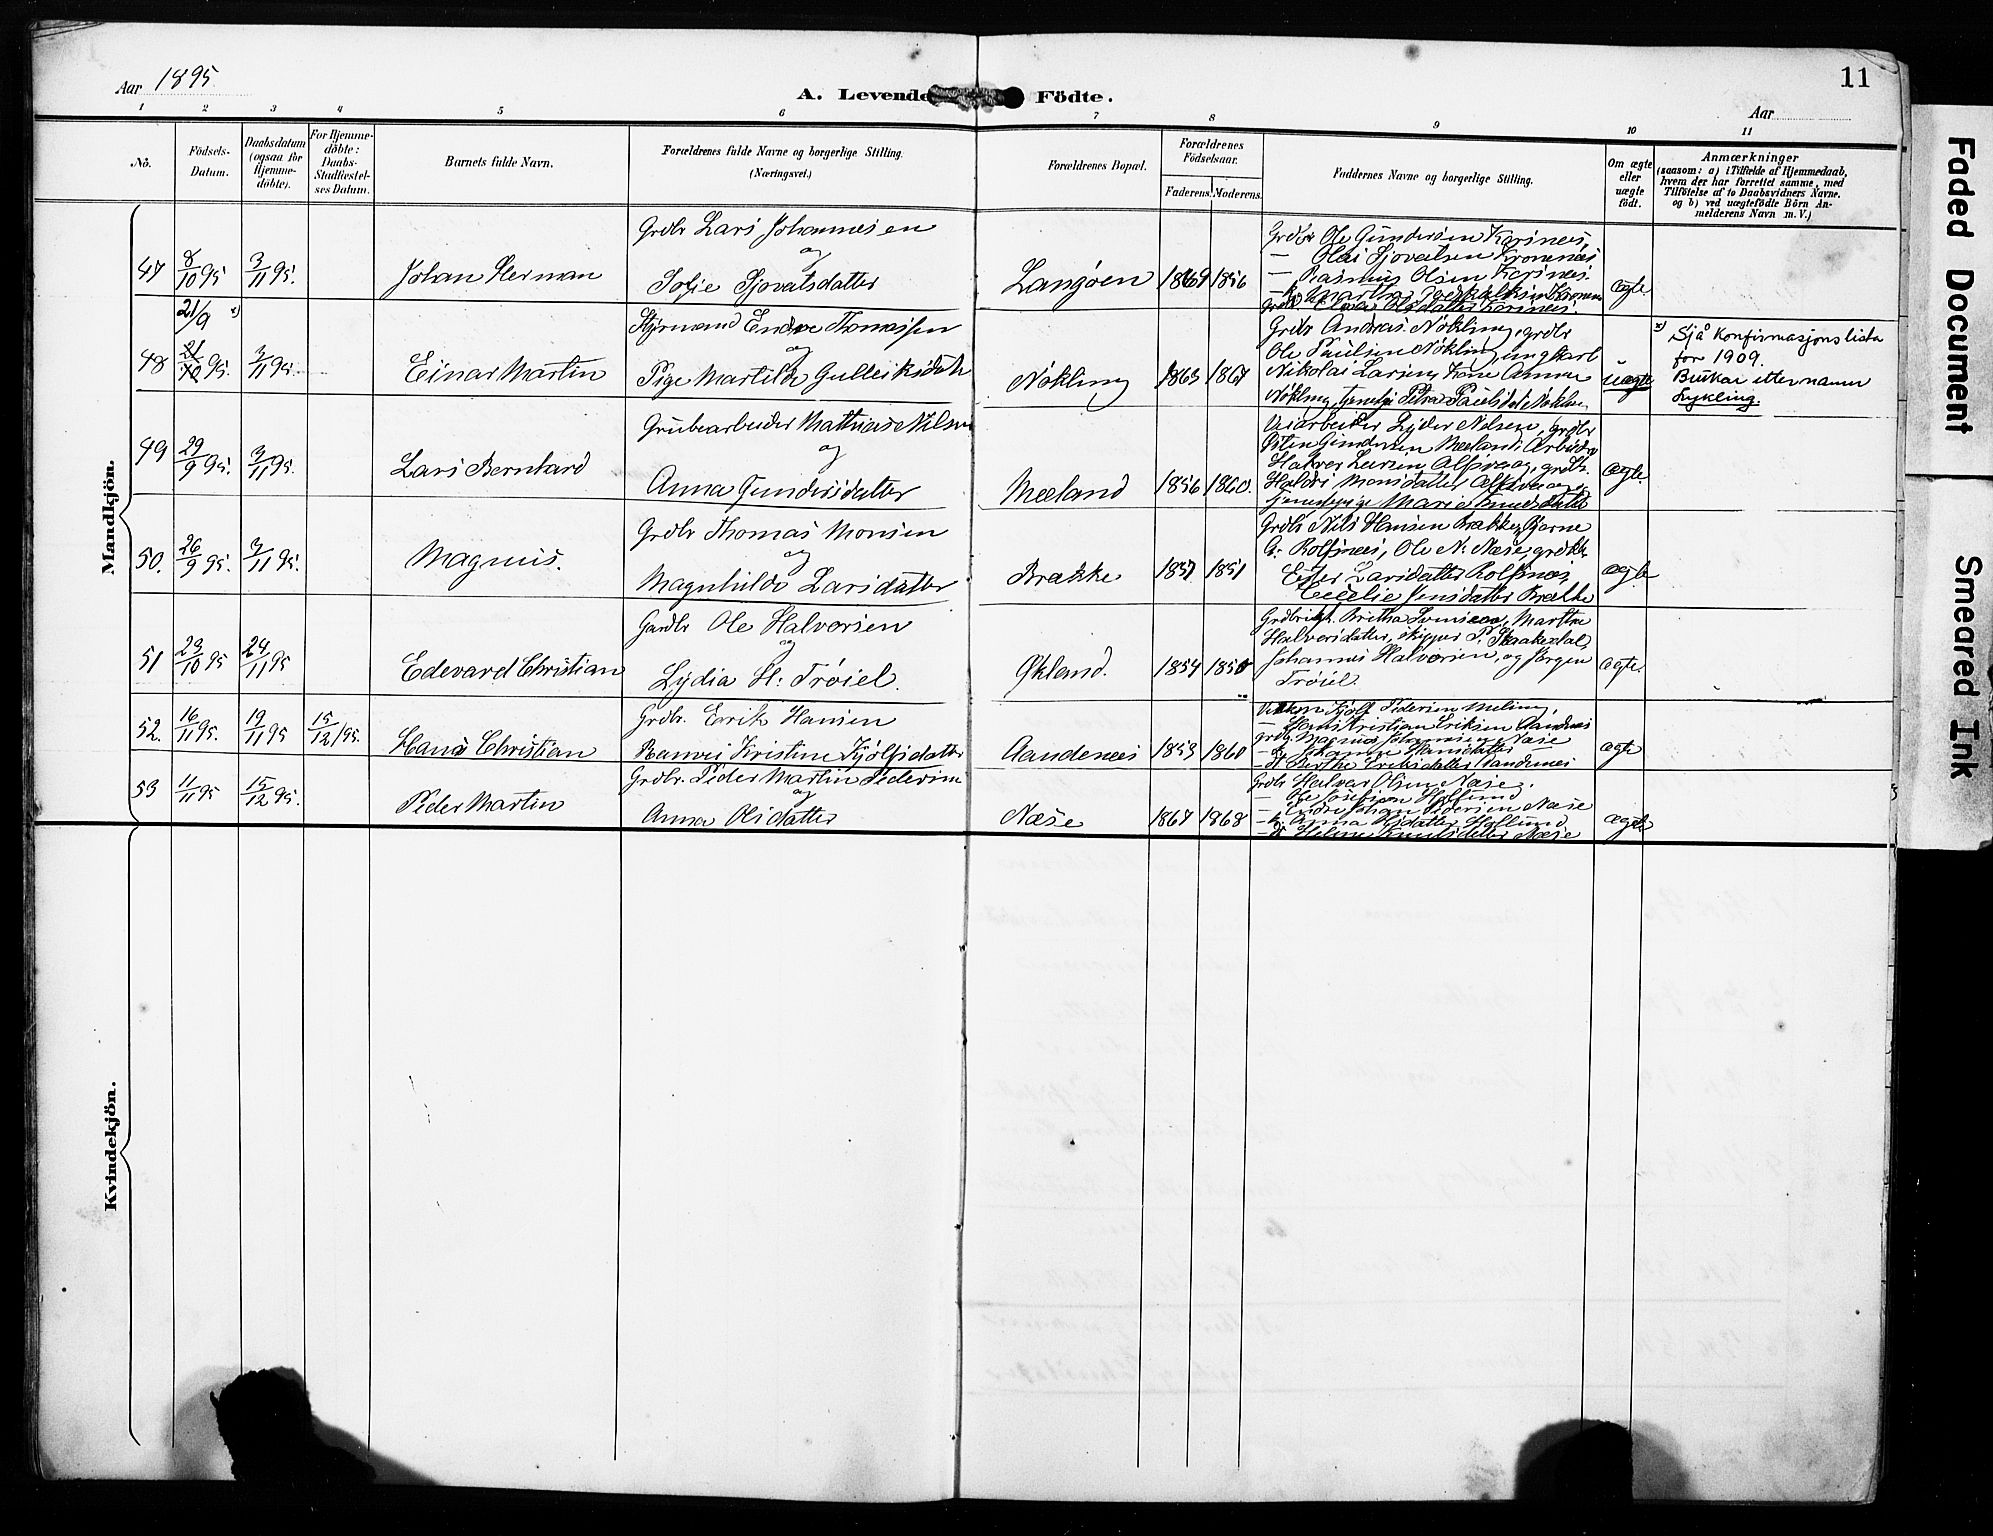 Aar 1895.
A. Levende Födte.
11
Aar
1 2 3 4 5 6 7 8 9 10 11
No.
Födsels-Datum.
Daabsdatum (ogsaa for Hjemme-döbte).
For Hjemme-döbte: Daabs-Stadfæstel-ses Datum.
Barnets fulde Navn.
Forældrenes fulde Navne og borgerlige Stilling. (Næringsvei.)
Forældrenes Bopæl.
Forældrenes Födselsaar.
Faderens. Moderens.
Faddernes Navne og borgerlige Stilling.
Om ægte eller uægte födt.
Anmærkninger
(saasom: a) i Tilfælde af Hjemmedaab,
hvem der har forrettet samme, med
Tilföielse af to Daabsvidners Navne.
og b) ved uægtefödte Börn An-
melderens Navn m. V.)
Mandkjön.
47 8/10 95 3/11 95. Johan Herman
Grdbr Lars Johannesen
og
Sofie Sjovatsdatter
Langøen 1869 1856
Grdbr Ole Gundersen Karines,
— Olai Sjovatsen Kromenæs
— Rasmus Olsen Karines.
ægte.
21/9 x)
48 21/10 95. 3/11 95. Einar Martin
Styrmand Endre Thomassen
og
Pige Martilde Gulleiksdatr
Nökling 1863 1867
Grdbr Andreas Nökling, grdbr
Ole Paulsen Nökling, ungkarl
Nikolai Larsen, Kone Anna
Nökling, tjenestp Petra Paulsdat Nökling
uægte
x) Sjå Konfirmasjonslista
for 1909.
Brukar etternamn
Lykling.
49 29/9 95. 3/11 95. Lars Bernhard
Grubearbeider Mathias Nilsen
og
Anna Gundersdatter
Mæland 1856 1860.
Veiarbeider Lyder Nilsen, grdbr
Østen Gundersen Mæland, Arbeider
Halvor Larsen Alfsvaag, grdbr.
ægte.
50. 26/9 95. 3/11 95. Magnus.
Grdbr Thomas Monsen
og
Magnhilde Larsdatter
Brække 1857 1851
Grdbr Nils Hansen Brække, Bjarne
G. Rolfsnæs, Ole N. Næse, grdbk
Ester Larsdatter Rolfsnæs,
Cecilie Jensdatter Brække
ægte
51 23/10 95 24/11 95 Edevard Christian
Gardbr Ole Halvorsen
og
Lydia H: Trøiel.
Økland. 1854 1850
Halvorsdatter, skipper P. Skaakedal,
Johannes Halvorsen, og Jørgen
Trøiel.
ægte.
52. 16/11 95. 19/11 95 15/12 95. Hans Christian
Grdbr. Eerik Hansen
Ranvei Kristine Kjölfsdatter
Aandenæs 1853 1860
— Hans Kristian Eriksen Aandnes
grdb Magnus Johannesen Næse
— k Johanne Hansdatter
— d Berthe Eriksdatter Aandenæs
ægte
53 11/11 95 15/12 95. Peder Martin
Grdbr. Peder Martin Pedersen
og
Anna Olsdatter
Næse 1867 1868
Grdbr Halvar Olsen Næse.
— Ole Josefsen Høflund
— Endre Johan Pedersen Næse
— k Anna Olsdatter Høflund
— d Helene Knutsdatter Næse
ægte
Kvindekjön.
Faded Document
Smeared Ink